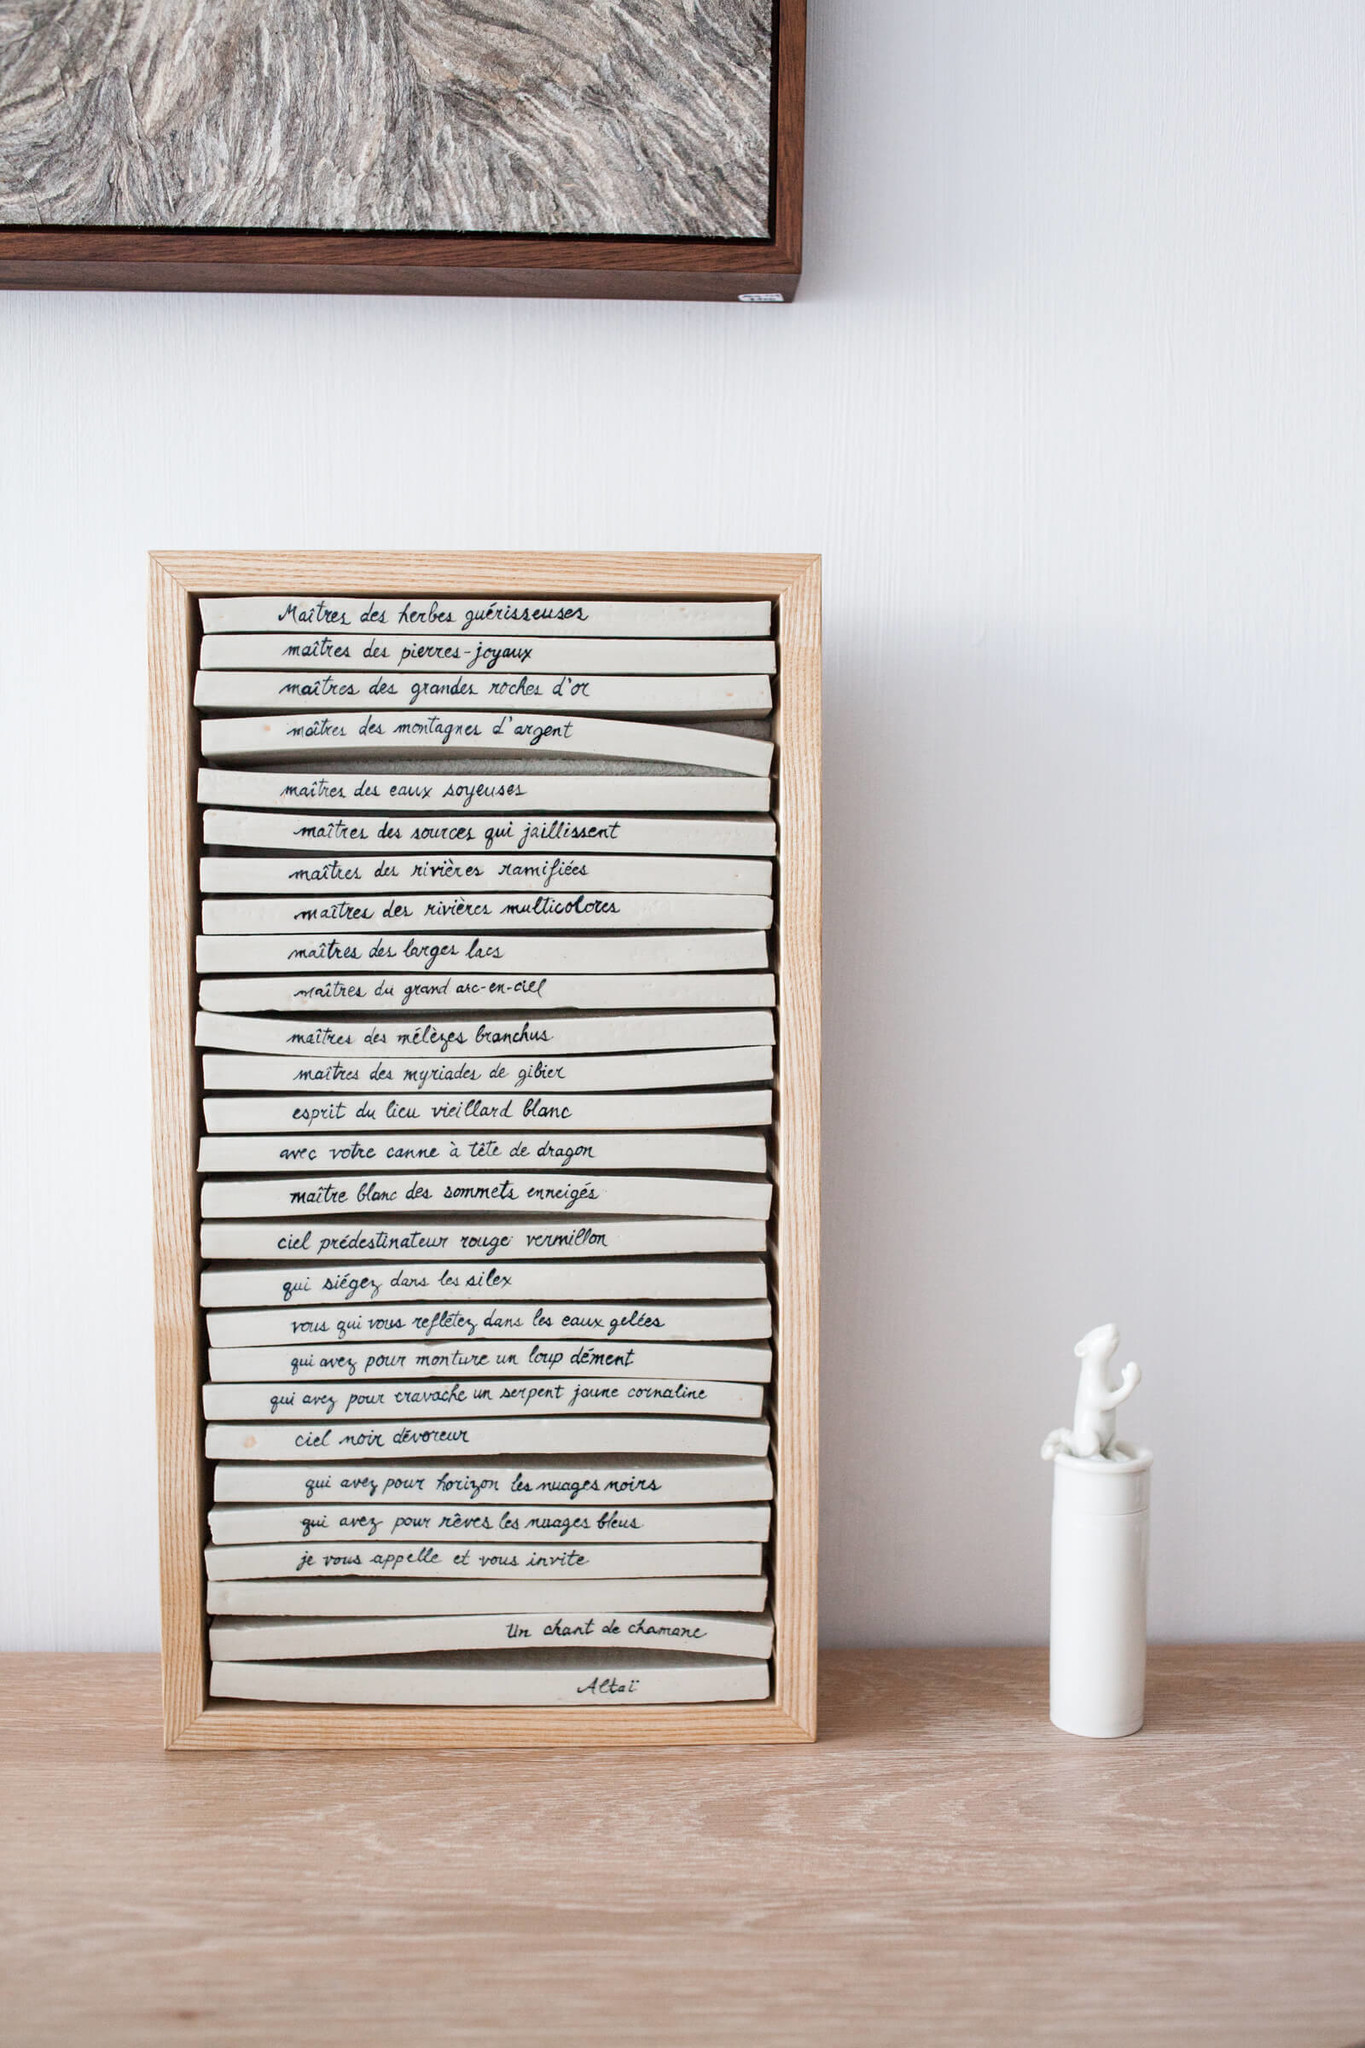 Maîtres des herbes guérisseuses
maîtres des pierres-joyaux
maîtres des grandes roches d'or
maîtres des montagnes d'argent
maîtres des eaux soyeuses
maîtres des sources qui jaillissent
maîtres des rivières ramifiées
maîtres des rivières multicolores
maîtres des larges lacs
maîtres du grand arc-en-ciel
maîtres des mélèzes branchus
maîtres des myriades de gibier
esprit du lieu vieillard blanc
avec votre canne à tête de dragon
maître blanc des sommets enneigés
ciel prédestinateur rouge vermillon
qui siégez dans les silex
vous qui vous reflétez dans les eaux gelées
qui avez pour monture un loup dément
qui avez pour cravache un serpent jaune cornaline
ciel noir dévoreur
qui avez pour horizon les nuages noirs
qui avez pour rêves les nuages bleus
je vous appelle et vous invite
Un chant de chamane
Altaï